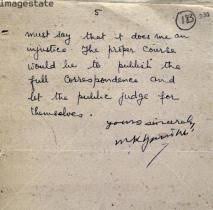 imagestate
5
183
must say that it does me an
injustice. The proper course
would be to publish the
full correspondence and
let the public judge for
themselves.
yours sincerely,
MKGandhi